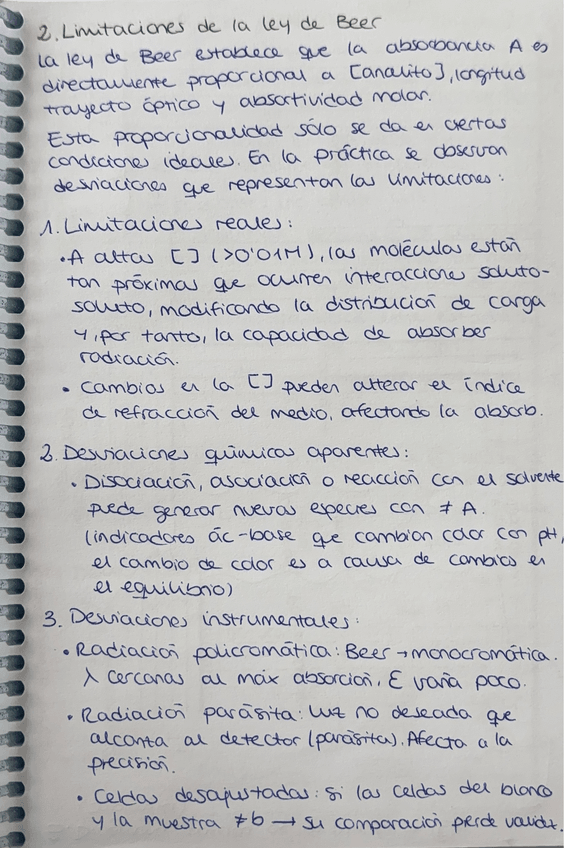 2. Limitaciones de la ley de Beer
La ley de Beer establece que la absorbancia A es
directamente proporcional a [analito], longitud
trayecto óptico y absortividad molar.
Esta proporcionalidad sólo se da en ciertas
condiciones ideales. En la práctica se observan
desviaciones que representan las limitaciones:
1. Limitaciones reales:
• A altas [] (>0'01M), las moléculas están
tan próximas que ocurren interacciones soluto-
soluto, modificando la distribución de carga
y, por tanto, la capacidad de absorber
radiación.
• Cambios en la [] pueden alterar el índice
de refracción del medio, afectando la absorb.
2. Desviaciones químicas aparentes:
• Disociación, asociación o reacción con el solvente
puede generar nuevas especies con ≠ A.
(indicadores ác-base que cambian color con pH,
el cambio de color es a causa de cambios en
el equilibrio)
3. Desviaciones instrumentales:
• Radiación policromática: Beer → monocromática.
λ cercanas al máix absorción, Ɛ varía poco.
• Radiación parásita: luz no deseada que
alcanza al detector (parásita). Afecta a la
precisión.
• Celdas desajustadas: si las celdas del blanco
y la muestra ≠ b → su comparación pierde validez.